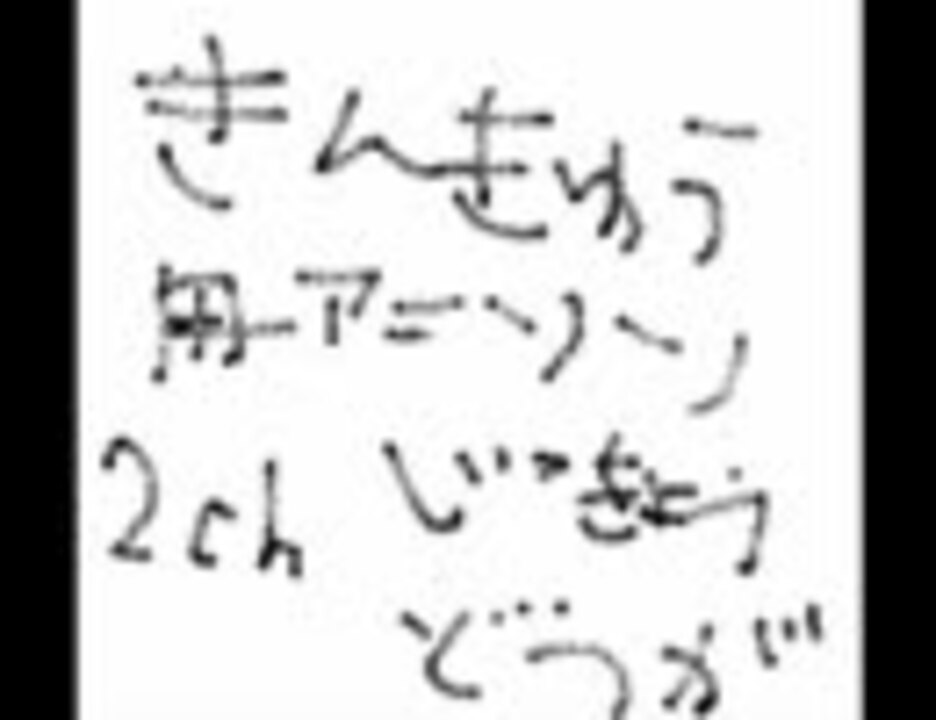 きんきゅう
用アニソン
2ch じっきょう
どうが